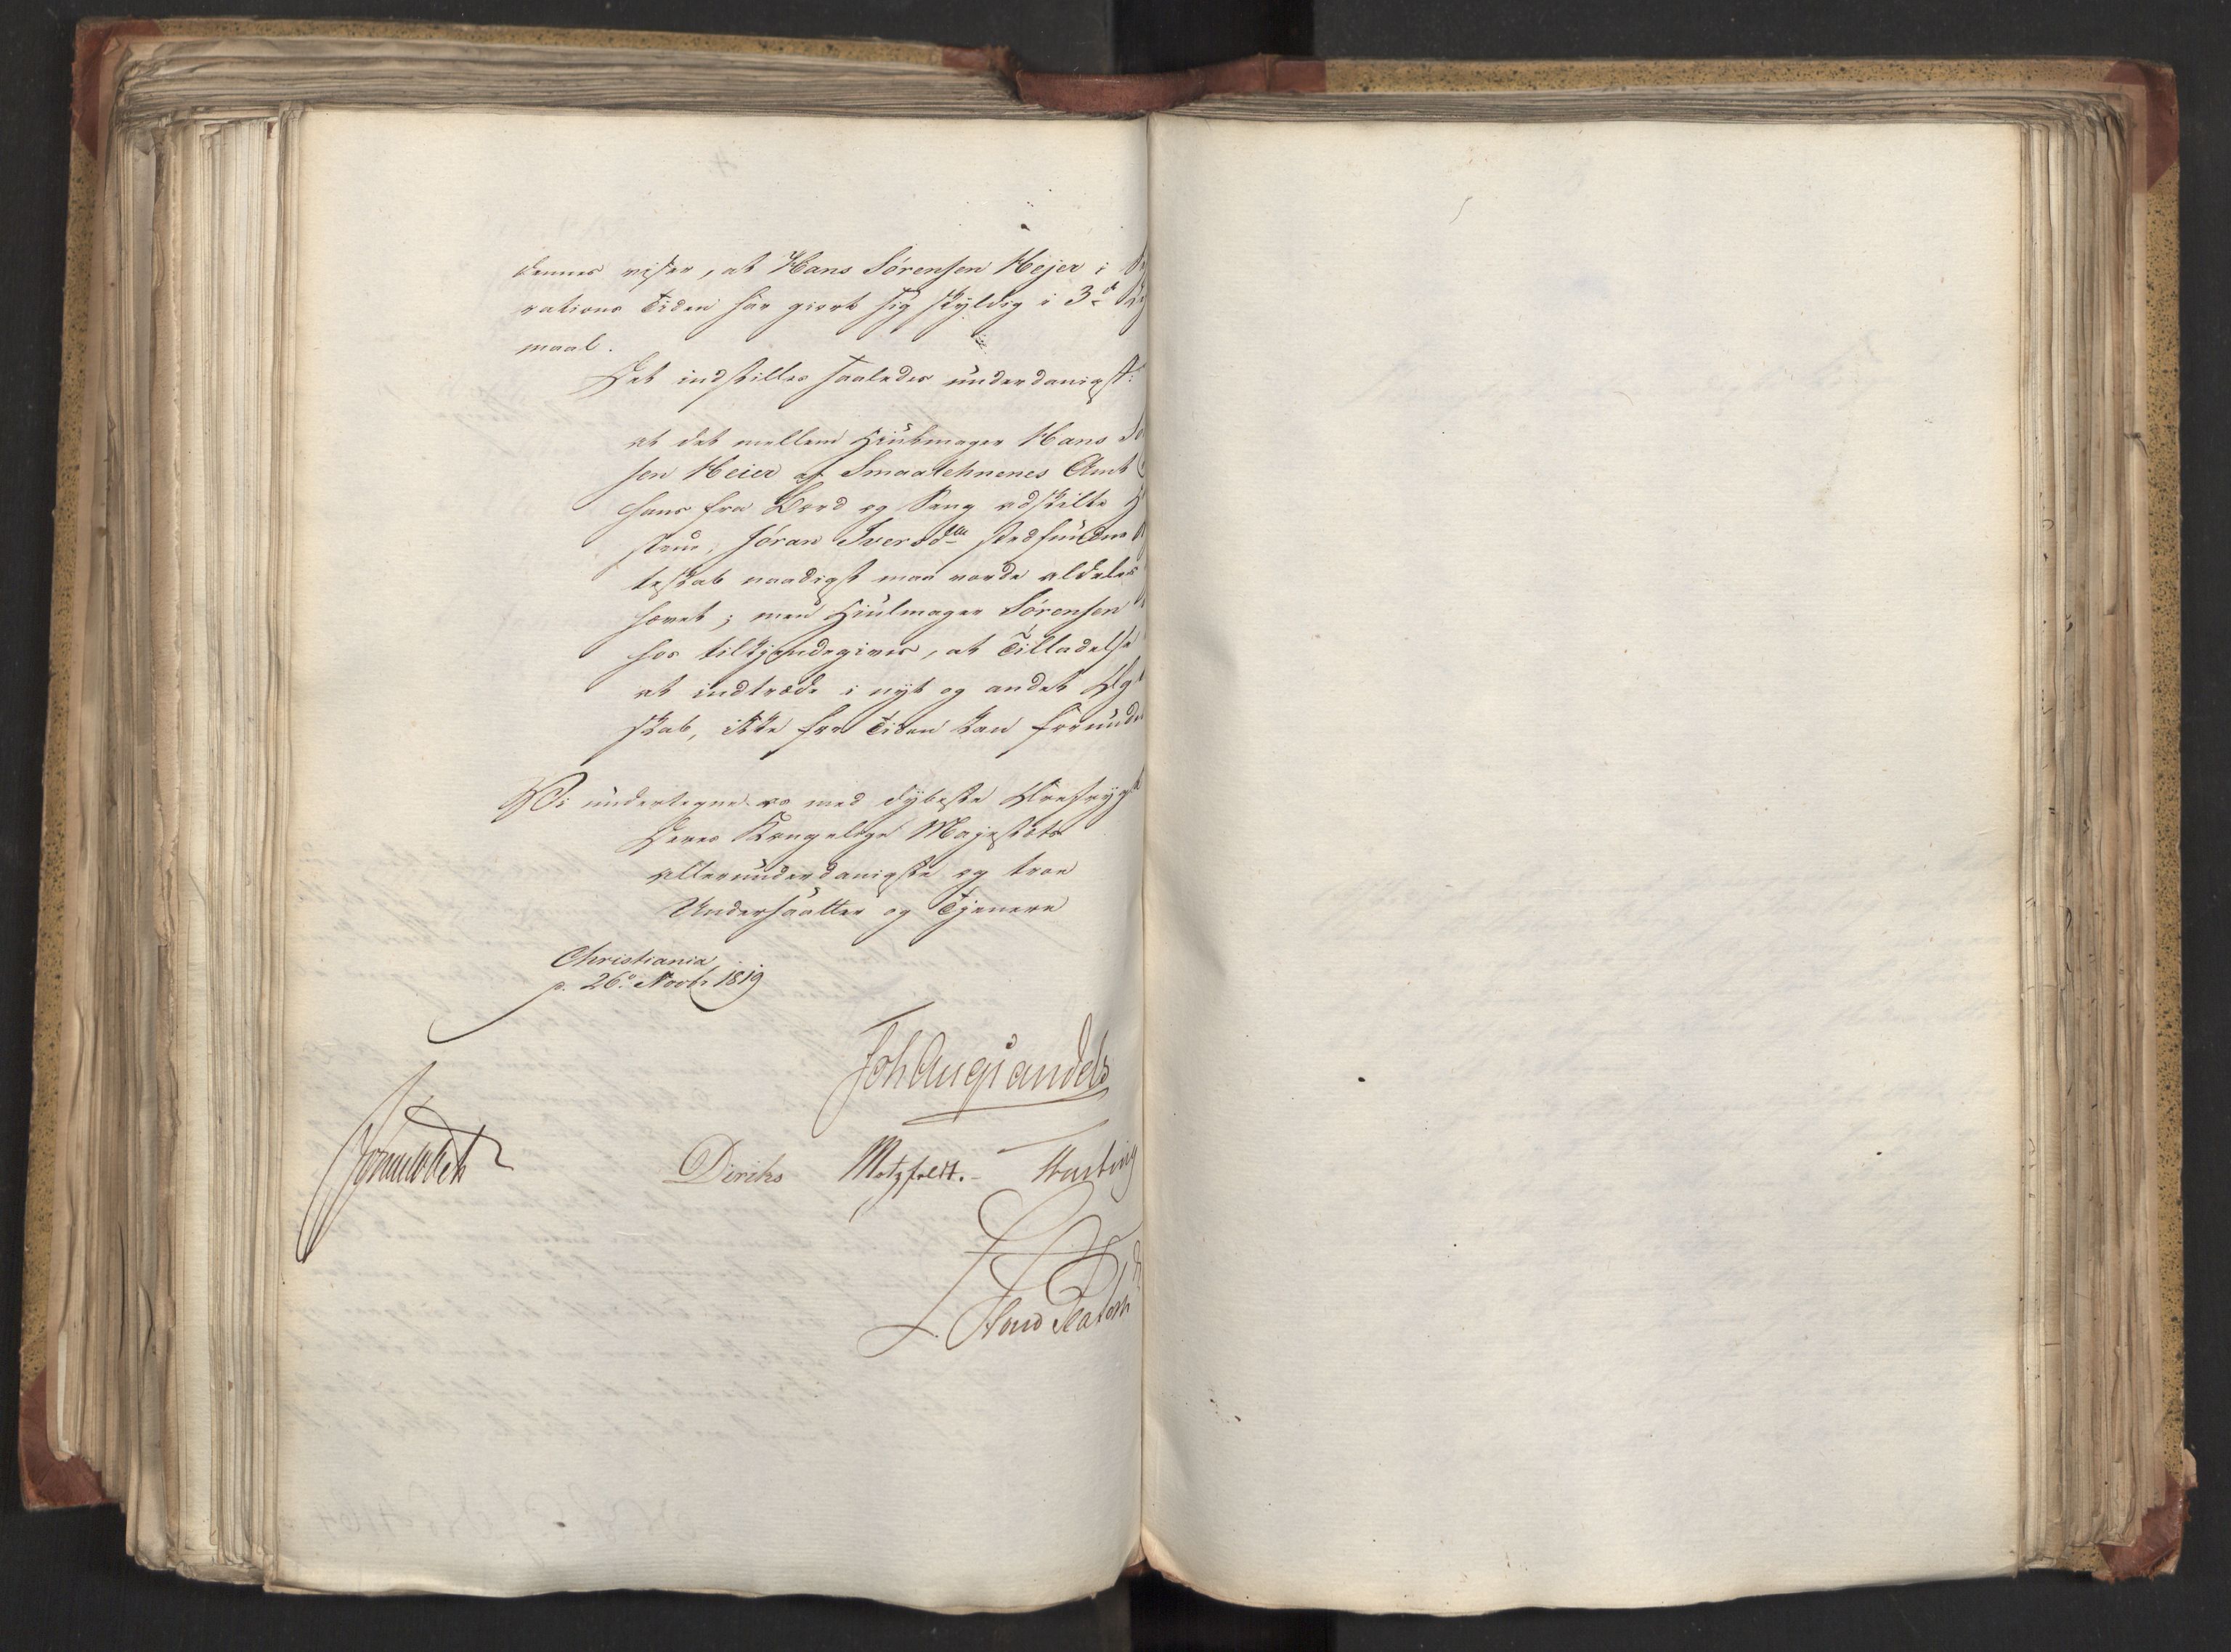 dennes viser, at Hans Sörensen Hejer i
rations Tiden har giort sig skyldig i 3de
maal.
Det indstilles saaledes underdanigst:
at det mellem Hiulmager Hans Sö
sen Heier af Smaalehnenes Amt
hans fra Bord og Seng adskilte H
stru, Jöran Iversdtr stedfundne
teskab naadigst maa vorde aldeles
hævet; men Hiulmager Sörensen
hos tilkjendegives, at Tilladelse
at indtræde i nyt og andet Ægt
skab, ikke for Tiden kan forunde
Vi undertegne os med dybeste Ærefrygt
Deres Kongelige Majestæts
allerunderdanigste og troe
Undersaatter og Tjenere
Christiania
p. 26de Novbr 1819
Joh Aug Sandels
Diriks Motzfeldt. Hasting